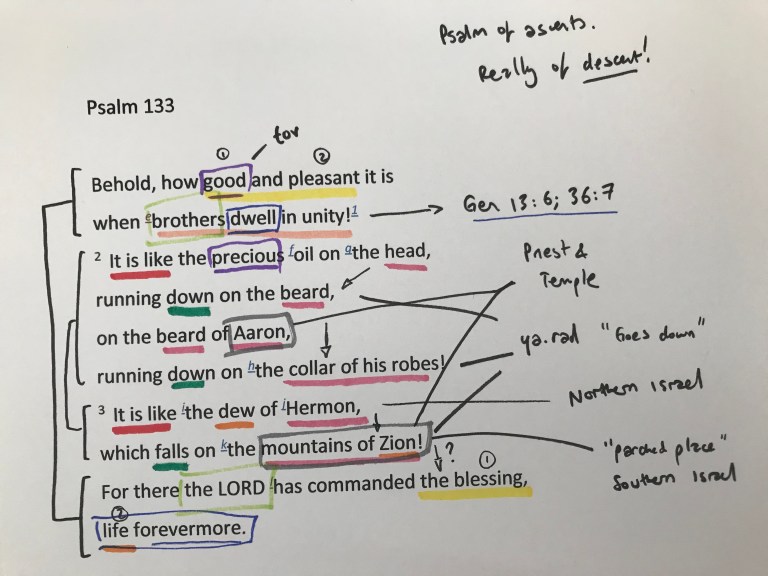 Psalm of ascents.
Really of descent!
Psalm 133
① ②
tov
Behold, how good and pleasant it is
when ᵉbrothers dwell in unity!¹
Gen 13:6; 36:7
² It is like the precious ᶠoil on ᵍthe head,
Priest &
Temple
running down on the beard,
on the beard of Aaron,
ya.rad "Goes down"
running down on ʰthe collar of his robes!
³ It is like ⁱthe dew of ʲHermon,
Northern Israel
which falls on ᵏthe mountains of Zion!
? ①
"parched place"
Southern Israel
For there the LORD ˡhas commanded the blessing,
②
life forevermore.